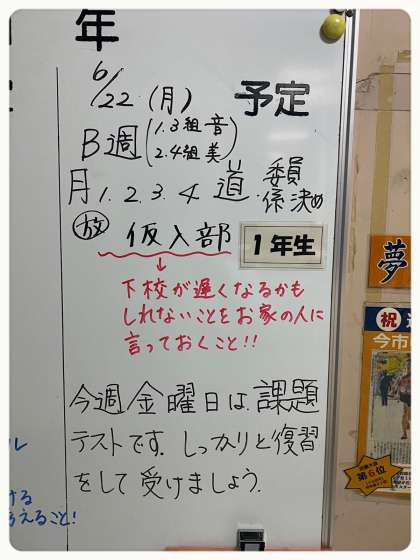 年
6/22 (月) 予定
B週 (1.3組 音
2.4組 美)
月 1. 2. 3. 4 道 委員
係 決め
放 仮入部 1年生
↓
下校が遅くなるかも
しれないことをお家の人に
言っておくこと!!
今週金曜日は、課題
テストです。しっかりと復習
をして受けましょう。
ル
ける
考えること!
夢
祝
今市
第6位